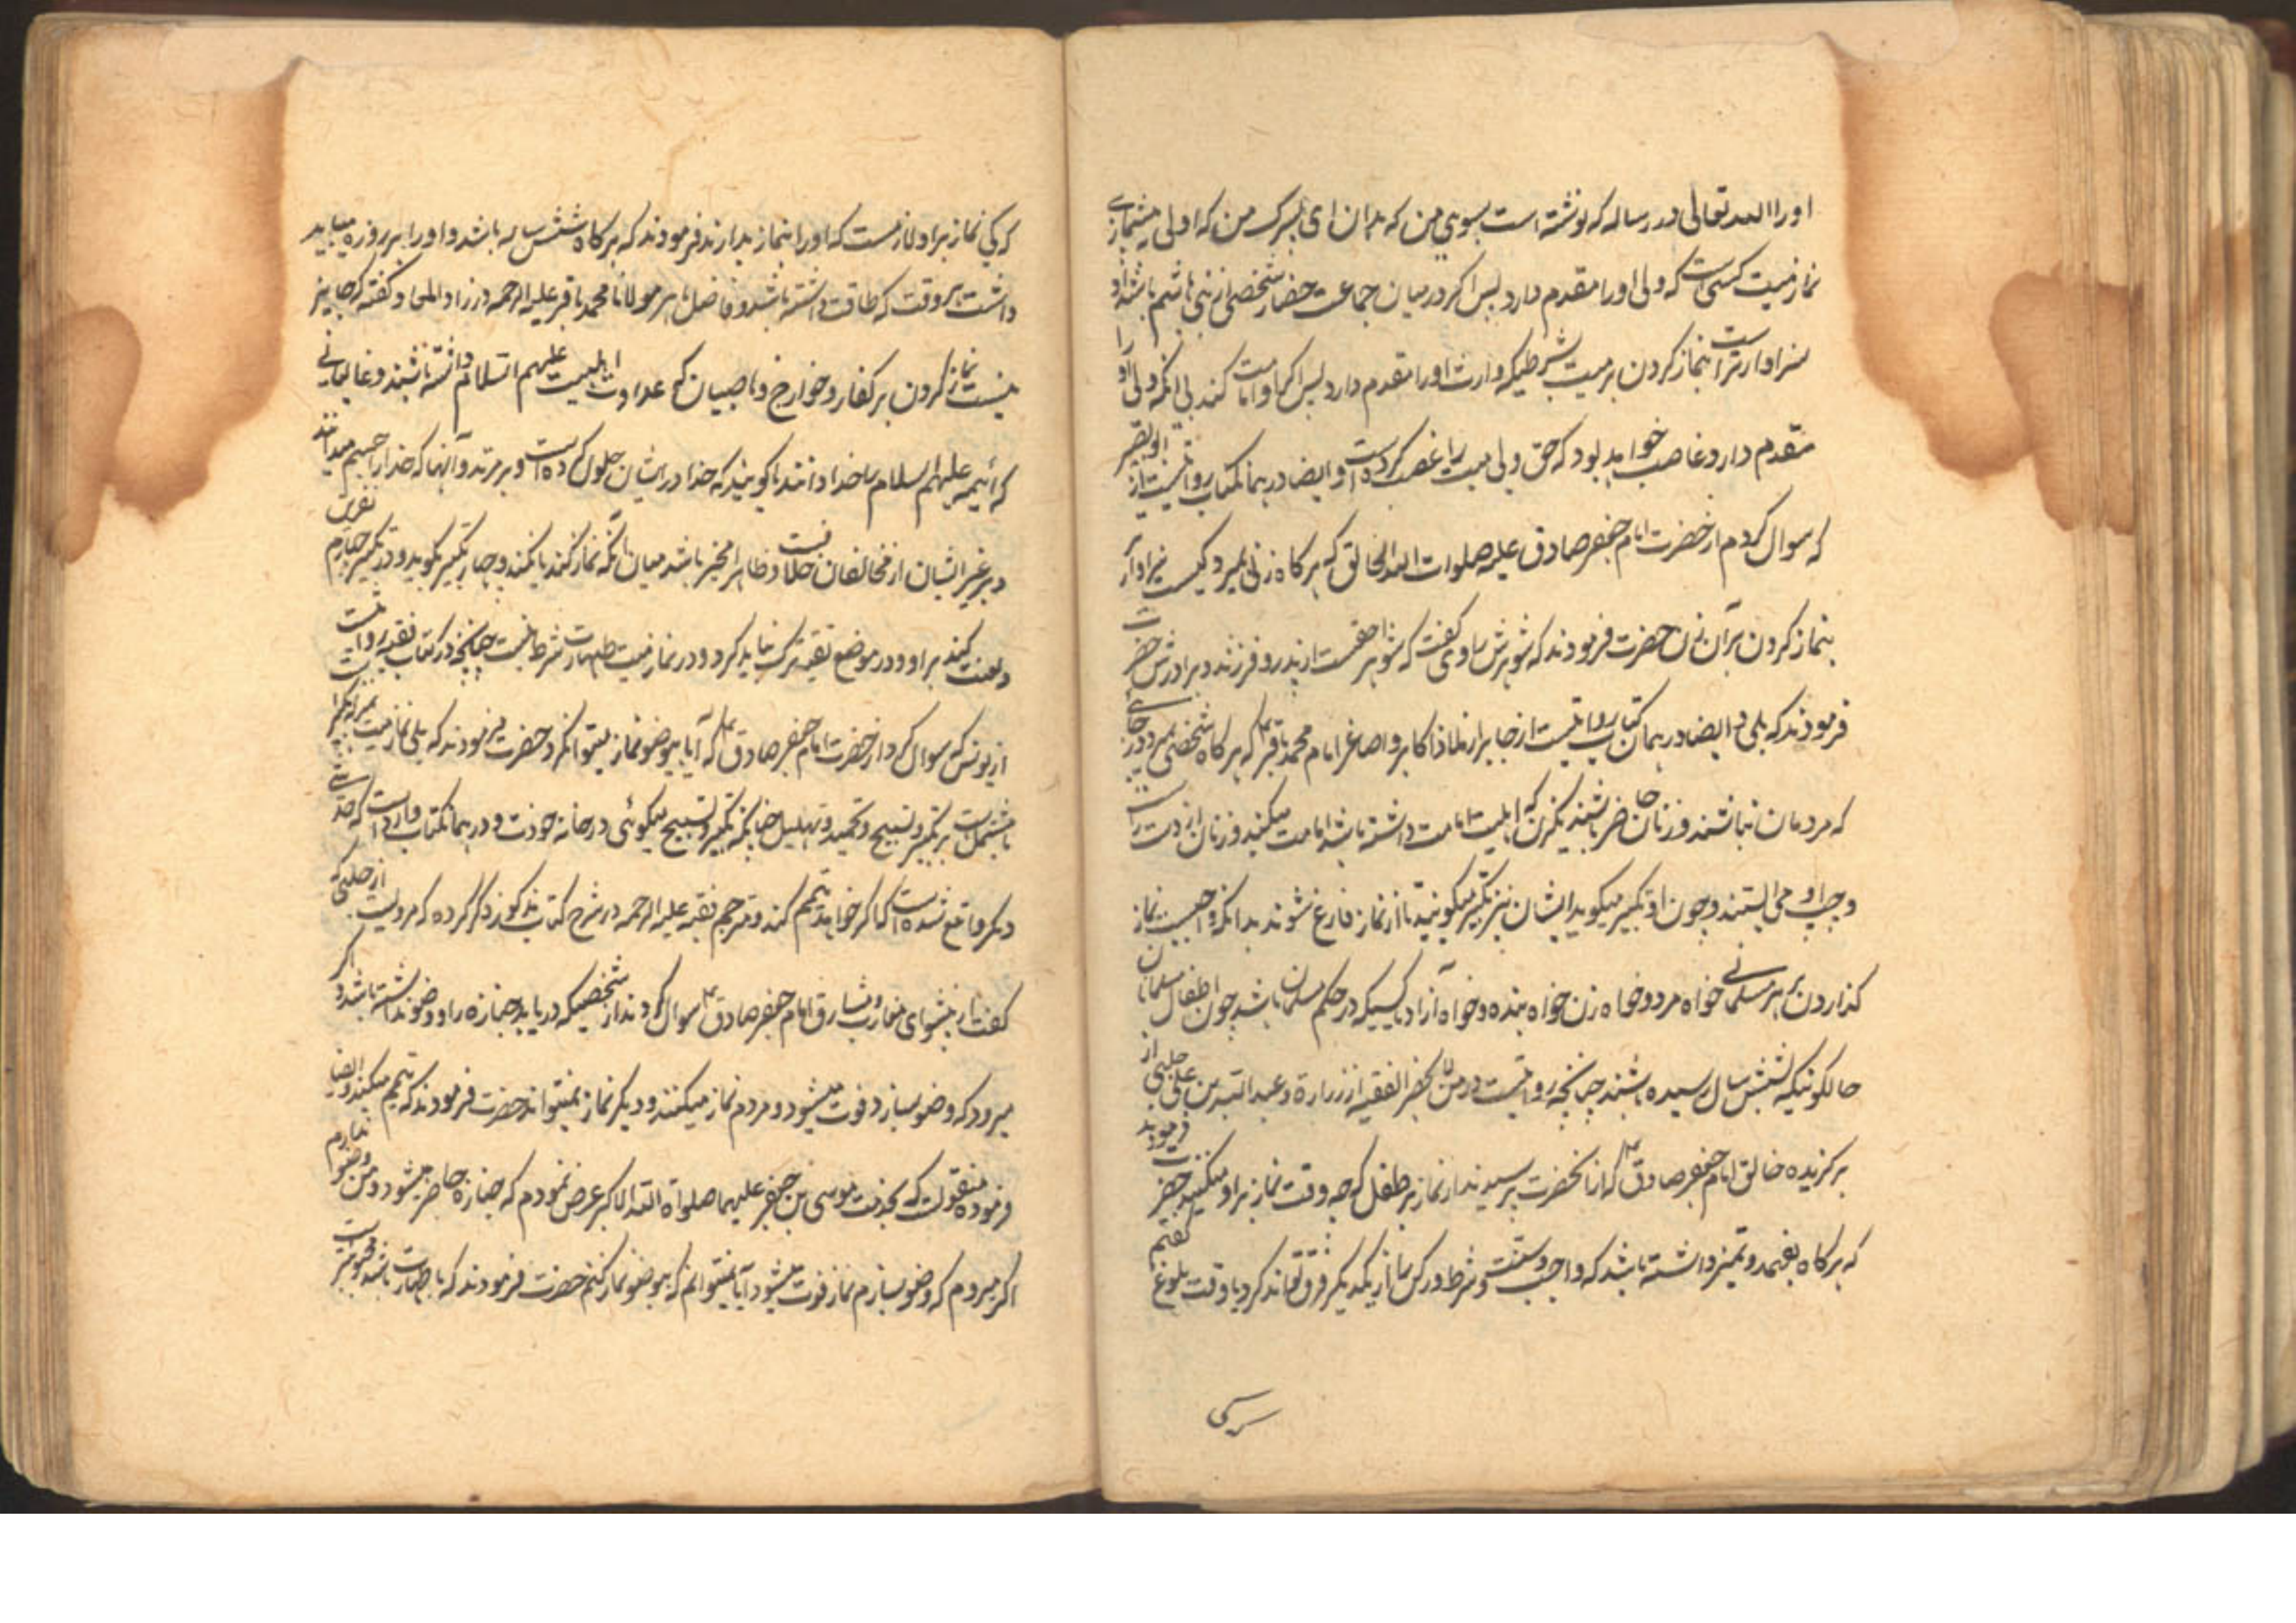 او را الله تعالی در رساله که نوشته است بسوی من که بدان ای پسرک من که اولی به پیشنمازی
نماز میت کسی است که ولی او را مقدم دارد پس اگر در میان جماعت حضار شخصی از بنی هاشم باشد او
سزاوارتر است بنماز کردن بر میت بشرطیکه وارث او را مقدم دارد پس اگر او امامت کند بی آنکه ولی او را
مقدم دارد غاصب خواهد بود که حق ولی میت را غصب کرده است و ایضا در همان کتاب روایتست از ابو بصیر
که سوال کردم از حضرت امام جعفر صادق علیه صلوات الله الخالق که هر گاه زنی بمیرد کیست سزاوارتر
بنماز کردن بر آن زن حضرت فرمودند که شوهرش راوی گفت که شوهر احقست از پدر و فرزند و برادرش حضرت
فرمودند که بلی و ایضا در همان کتاب روایتست از جابر از ملاذ اکابر و اصاغر امام محمد باقر ع که هر گاه شخصی بمیرد در جائی
که مردمان نباشند و زنان حاضر باشند یکزن که اهلیت امامت داشته باشد امامت میکند و زنان از دست راست
و چپ او می ایستند و چون او تکبیر میگوید ایشان نیز تکبیر میگویند تا از نماز فارغ شوند بدانکه واجبست نماز
گذاردن بر هر مسلمانی خواه مرد و خواه زن خواه بنده و خواه آزاد یا کسیکه در حکم مسلمان باشد چون اطفال مسلمانان
حالکونیکه بشش سال رسیده باشند چنانچه روایتست در من لا یحضر الفقیه از زراره و عبید الله بن علی حلبی از
برگزیده خالق امام جعفر صادق ع که از آنحضرت پرسیدند از نماز بر طفل که چه وقت نماز بر او میکنند حضرت فرمودند
که هر گاه بفهمد و تمیز داشته باشد که واجب و سنت و شرط و رکن را از یکدیگر فرق تواند کرد یا وقت بلوغ گفتم
که کی نماز بر او لازمست که او را بنماز بدارند فرمودند که هر گاه شش ساله باشد و او را بر روزه میباید
داشت هر وقت که طاقت داشته باشد و فاضل ماهر مولانا محمد باقر علیه الرحمه در زاد المعاد گفته که جایز
نیست نماز کردن بر کفار و خوارج و ناصبیان که عداوت اهلبیت علیهم السلام داشته باشند و غالیانی
که ائمه علیهم السلام را خدا دانند یا گویند که خدا در ایشان حلول کرده است و بر مرتد و آنها که خدا را جسم میدانند
و بر غیر ایشان از مخالفان خلافست و ظاهرا مخیر باشد میان آنکه نماز کند یا نکند و چهار تکبیر بگوید و در تکبیر چهارم نفرین
و لعنت کند بر او و در موضع تقیه ترک نباید کرد و در نماز میت طهارت شرط نیست چنانچه در کتاب فقیه روایتست
از یونس که سوال کرد از حضرت امام جعفر صادق ع که آیا بیوضو نماز میتوانکرد حضرت فرمودند که بلی نماز میت نیست مگر
مشتمل بر تکبیر و تسبیح و تحمید و تهلیل چنانکه تکبیر و تسبیح میگوئی در خانه خودت و در همان کتاب وارد است که حدیثی
دیگر واقع شده است که اگر خواهد تیمم کند و مترجم فقیه علیه الرحمه در شرح کتاب مذکور ذکر کرده که مرویست از حلبی که
گفت از پیشوای مغارب و مشارق امام جعفر صادق ع سوال کردند از شخصیکه دریابد جنازه را و وضو نداشته باشد و اگر
میرود که وضو بسازد فوت میشود و مردم نماز میکنند و دیگر نماز نمیتواند حضرت فرمودند که تیمم میکند و ایضا
فرموده منقولست که بخدمت موسی بن جعفر علیهما صلواة الله الاکبر عرض نمودم که جنازه حاضر میشود و من وضو ندارم
اگر میروم که وضو بسازم نماز فوت میشود آیا میتوانم که بیوضو نماز کنم حضرت فرمودند که با طهارت باشد محبوبتر است